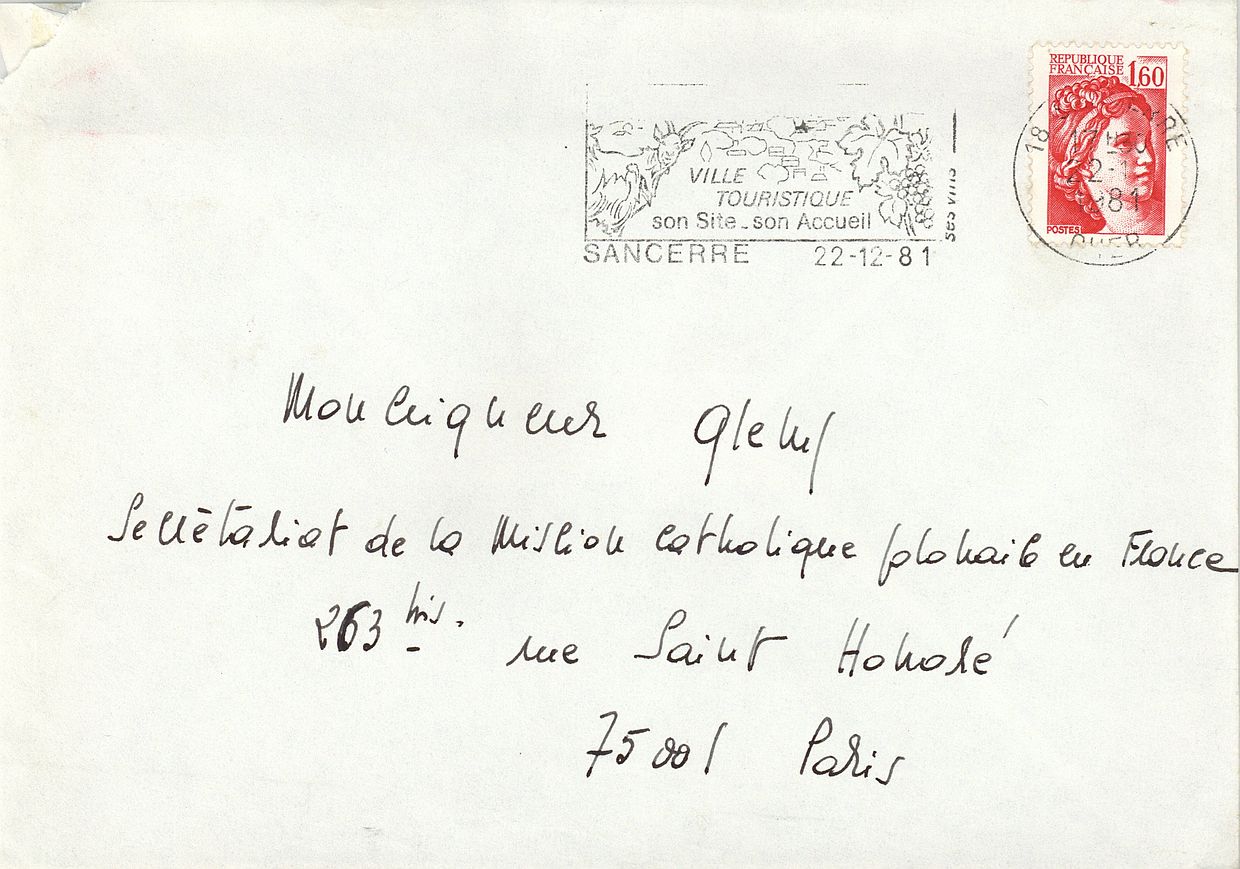 REPUBLIQUE
FRANÇAISE 1,60
POSTES
18
22-1
81
CHER
VILLE
TOURISTIQUE
son Site - son Accueil
ses vins
SANCERRE 22-12-81
Monseigneur
Secrétariat de la Mission Catholique polonaise en France
263 bis. rue Saint Honoré
75001 Paris